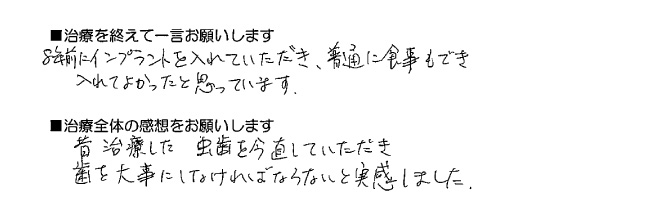 ■治療を終えて一言お願いします
8年前にインプラントを入れていただき、普通に食事もでき
入れてよかったと思っています.
■治療全体の感想をお願いします
昔治療した 虫歯を今直していただき
歯を大事にしなければならないと実感しました.